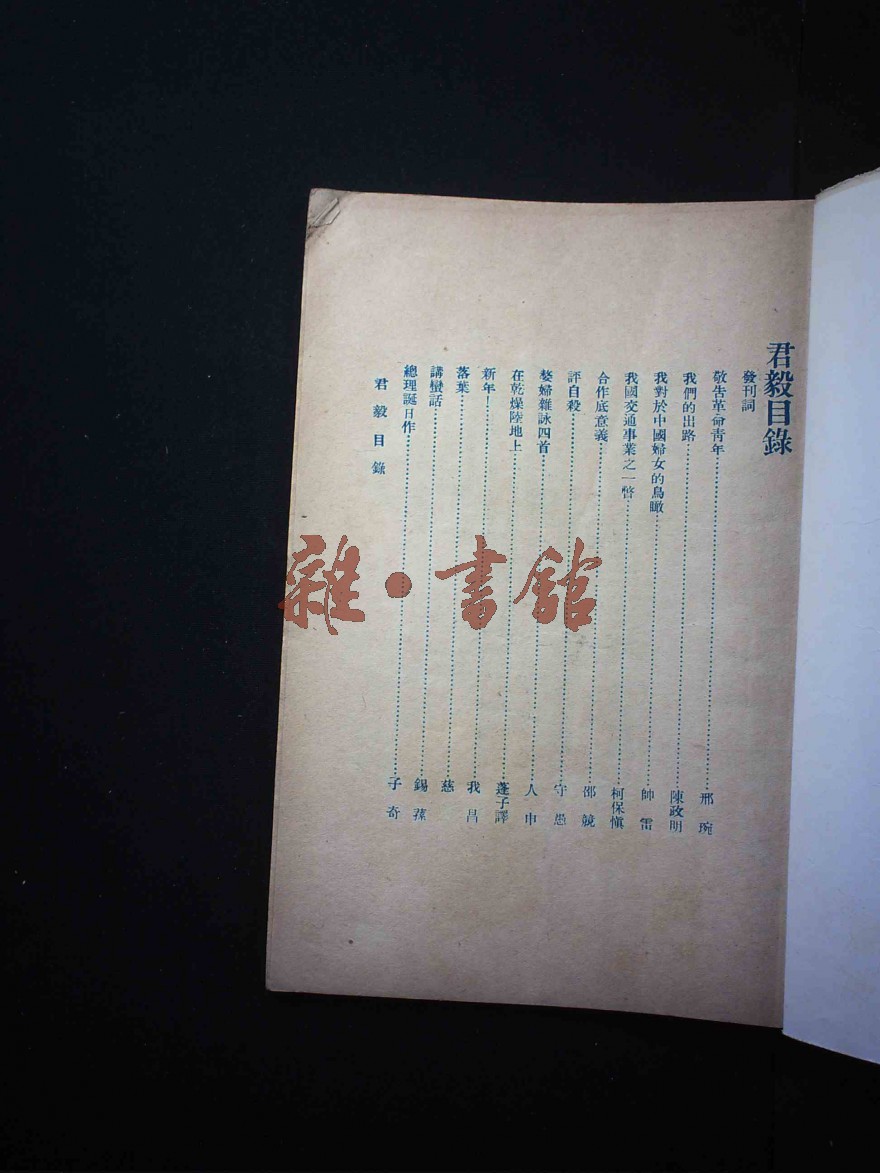 君毅目錄
發刊詞
敬告革命青年……邢琬
我們的出路……陳政明
我對於中國婦女的鳥瞰……帥雷
我國交通事業之一瞥……柯保愼
合作底意義……邵競
評自殺……守愚
嫠婦雜詠四首……人申
在乾燥陸地上……蓬子譯
新年……我昌
落葉……慈
講蠻話……錫蓀
總理誕日作……子奇
君毅目錄
雜·書館